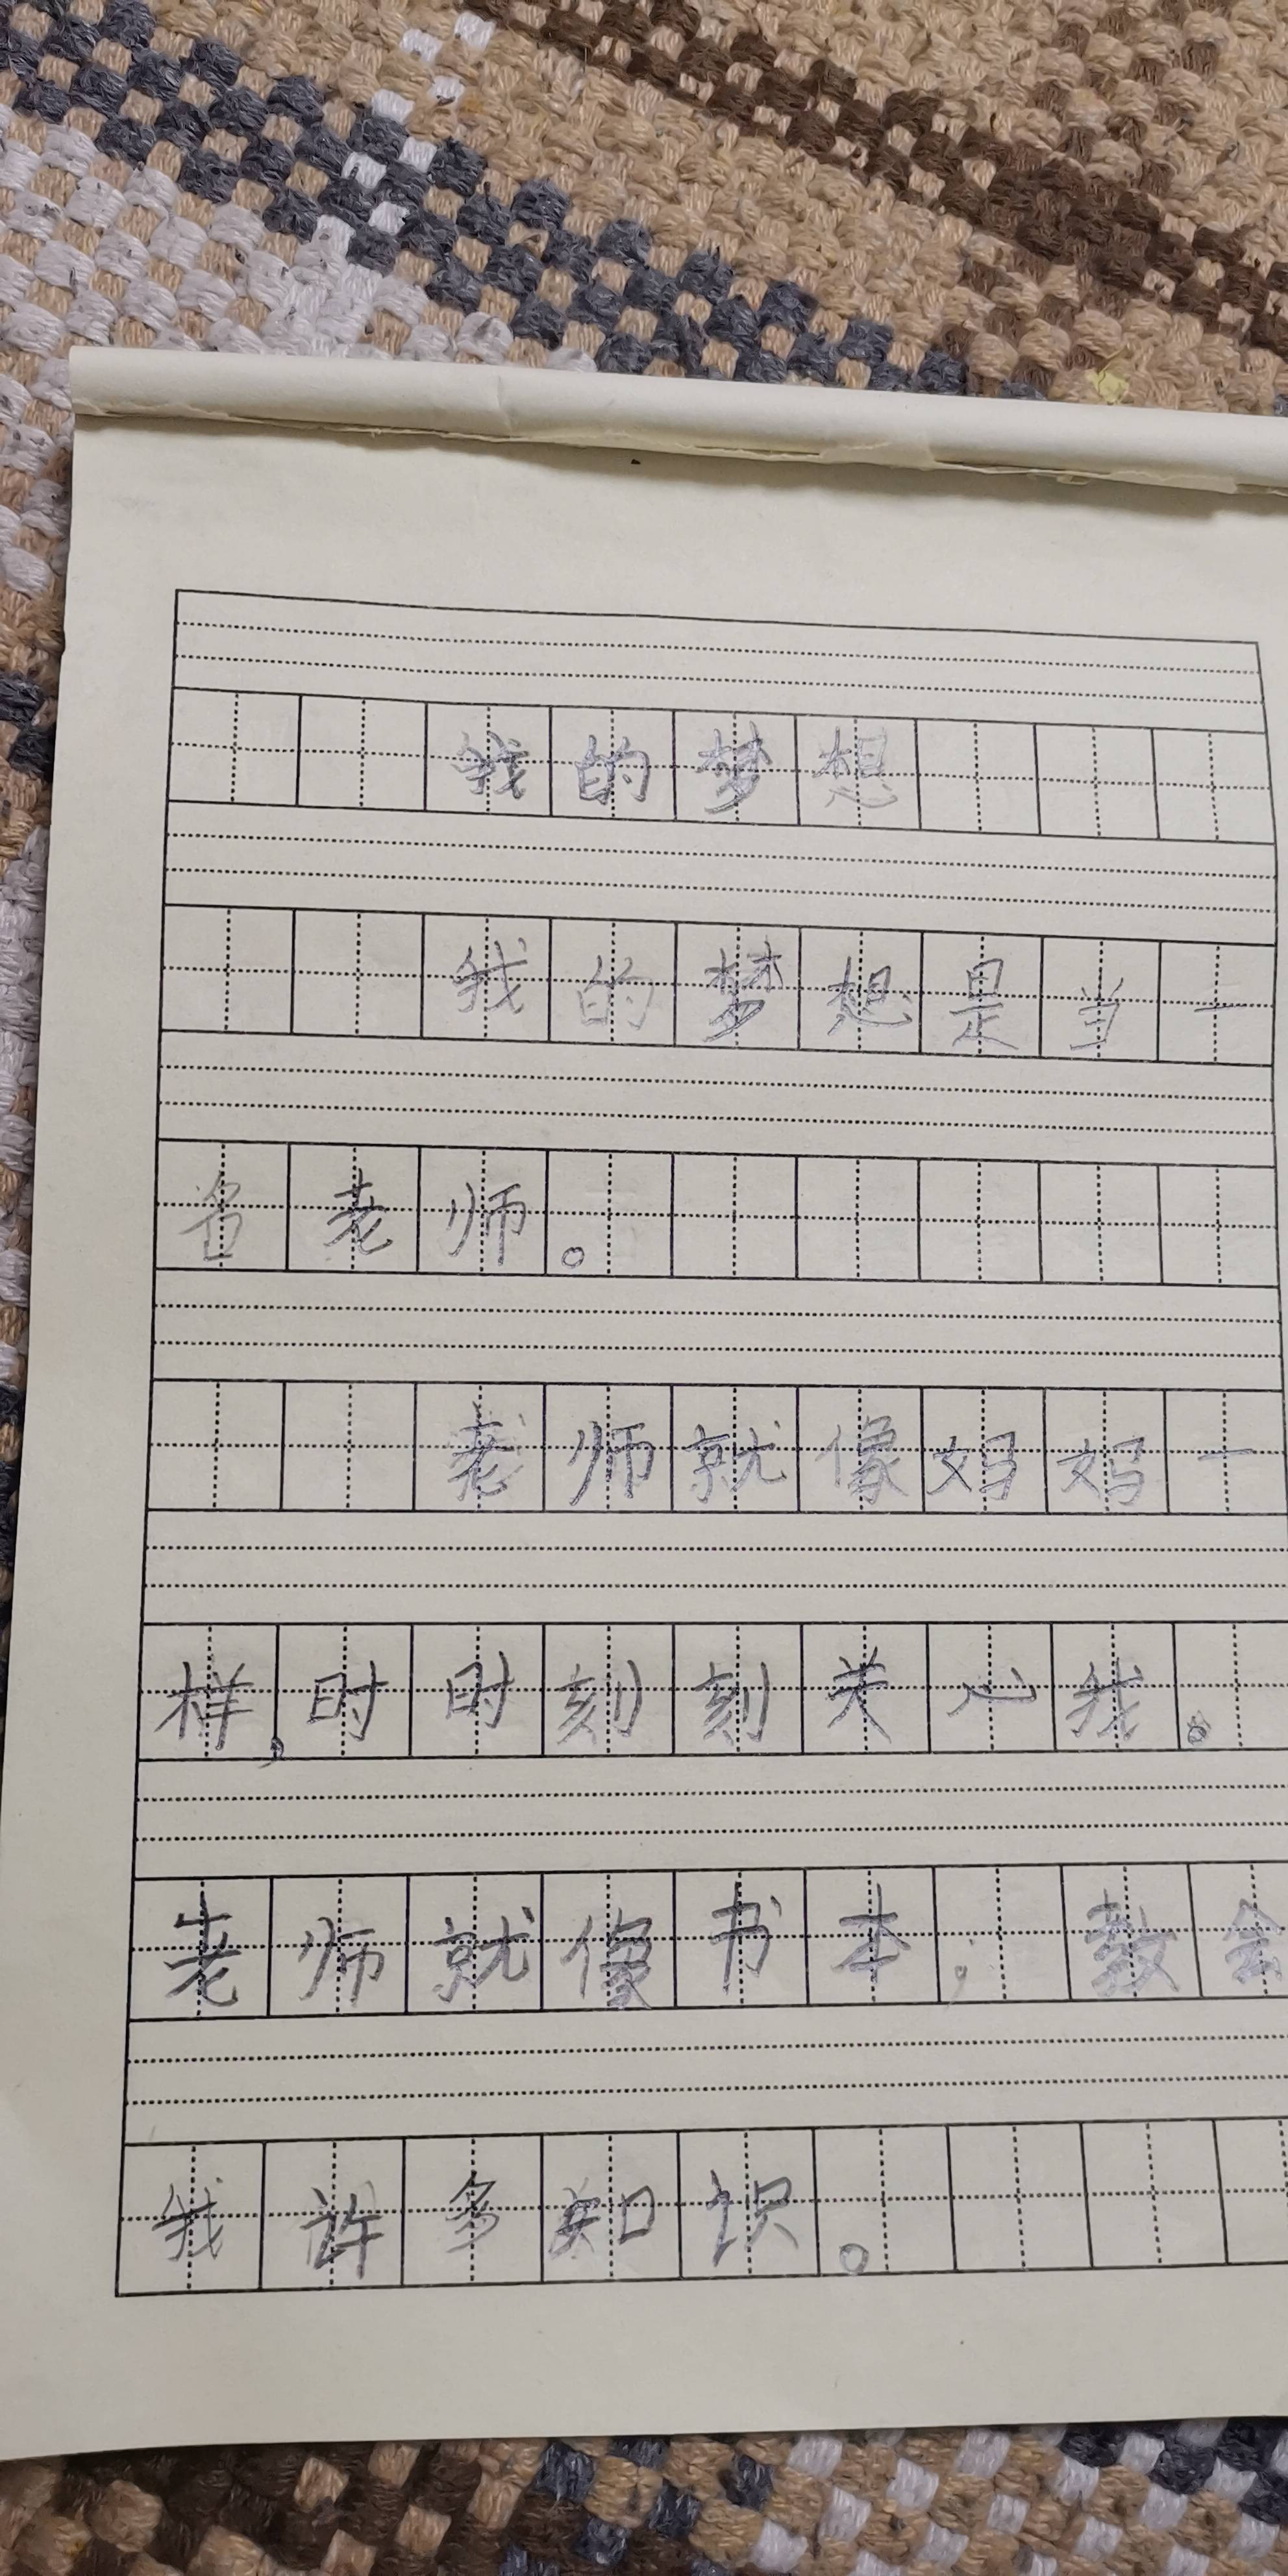 我的梦想
我的梦想是当一
名老师。
老师就像妈妈一
样,时时刻刻关心我。
老师就像书本;教会
我许多知识。